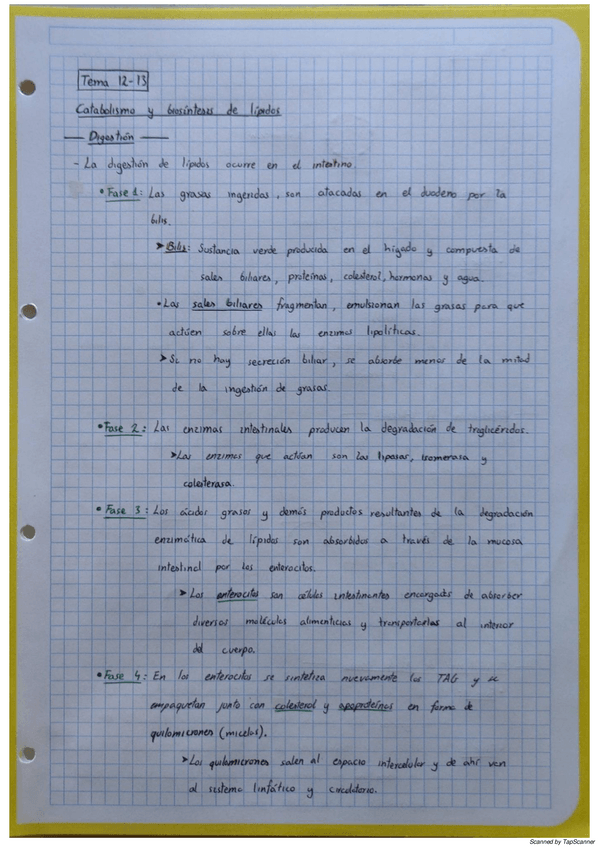 Tema 12-13
Catabolismo y biosíntesis de lípidos
Digestión
- La digestión de lípidos ocurre en el intestino.
• Fase 1: Las grasas ingeridas, son atacadas en el duodeno por la
bilis.
➤ Bilis: Sustancia verde producida en el hígado y compuesta de
sales biliares, proteínas, colesterol, hormonas y agua.
• Las sales biliares fragmentan, emulsionan las grasas para que
actúen sobre ellas las enzimas lipolíticas.
➤ Si no hay secreción biliar, se absorbe menos de la mitad
de la ingestión de grasas.
• Fase 2: Las enzimas intestinales producen la degradación de triglicéridos.
➤ Las enzimas que actúan son las lipasas, isomerasa y
colesterasa.
• Fase 3: Los ácidos grasos y demás productos resultantes de la degradación
enzimática de lípidos son absorbidos a través de la mucosa
intestinal por los enterocitos.
➤ Los enterocitos son células intestinales encargadas de absorber
diversas moléculas alimenticias y transportarlas al interior
del cuerpo.
• Fase 4: En los enterocitos se sintetiza nuevamente los TAG y se
empaquetan junto con colesterol y apoproteínas en forma de
quilomicrones (micelas).
➤ Los quilomicrones salen al espacio intercelular y de ahí van
al sistema linfático y circulatorio.
Scanned by TapScanner